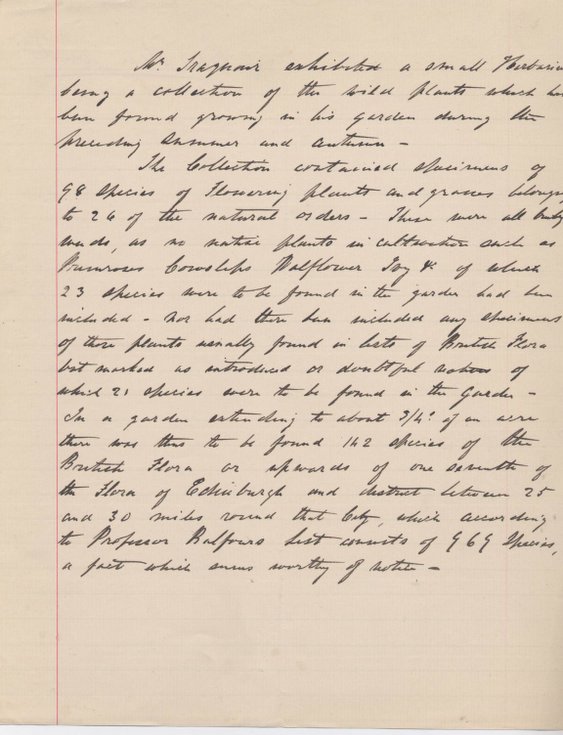 Mr Traquair exhibited a small Herbarium
being a collection of the wild plants which had
been found growing in his garden during the
preceding Summer and autumn –
The Collection contained specimens of
98 Species of Flowering plants and grasses belongg
to 26 of the natural orders – These were all truly
weeds, as no native plants in cultivation such as
Primroses Cowslips Wallflower Ivy &c of which
23 species were to be found in the garden had been
included – nor had there been included any specimens
of those plants usually found in lists of British Flora
but marked as introduced or doubtful natives of
which 21 species were to be found in the Garden –
In a garden extending to about 3/4s of an acre
there was thus to be found 142 species of the
British Flora or upwards of one seventh of
the Flora of Edinburgh and district between 25
and 30 miles round that City, which according
to Professor Balfours list consists of 969 Species,
a fact which seems worthy of notice –